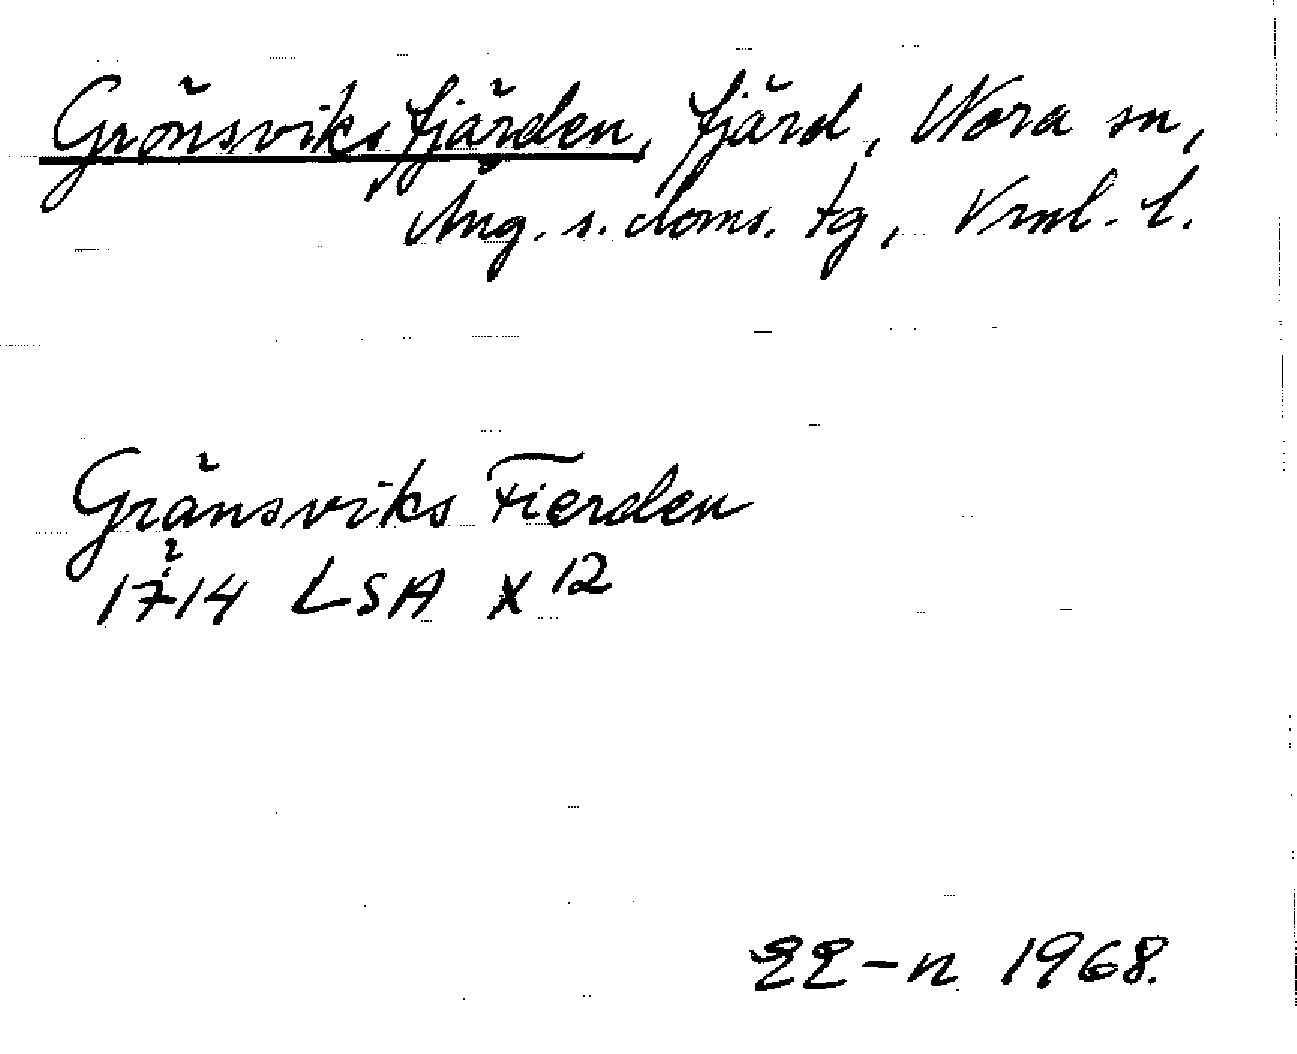 Grönsviksfjärden, fjärd, Nora sn,
Ång. s. doms. tg, Vrnl. l.
Gränsviks Fierden
1714 LSA X 12
EE-n 1968.